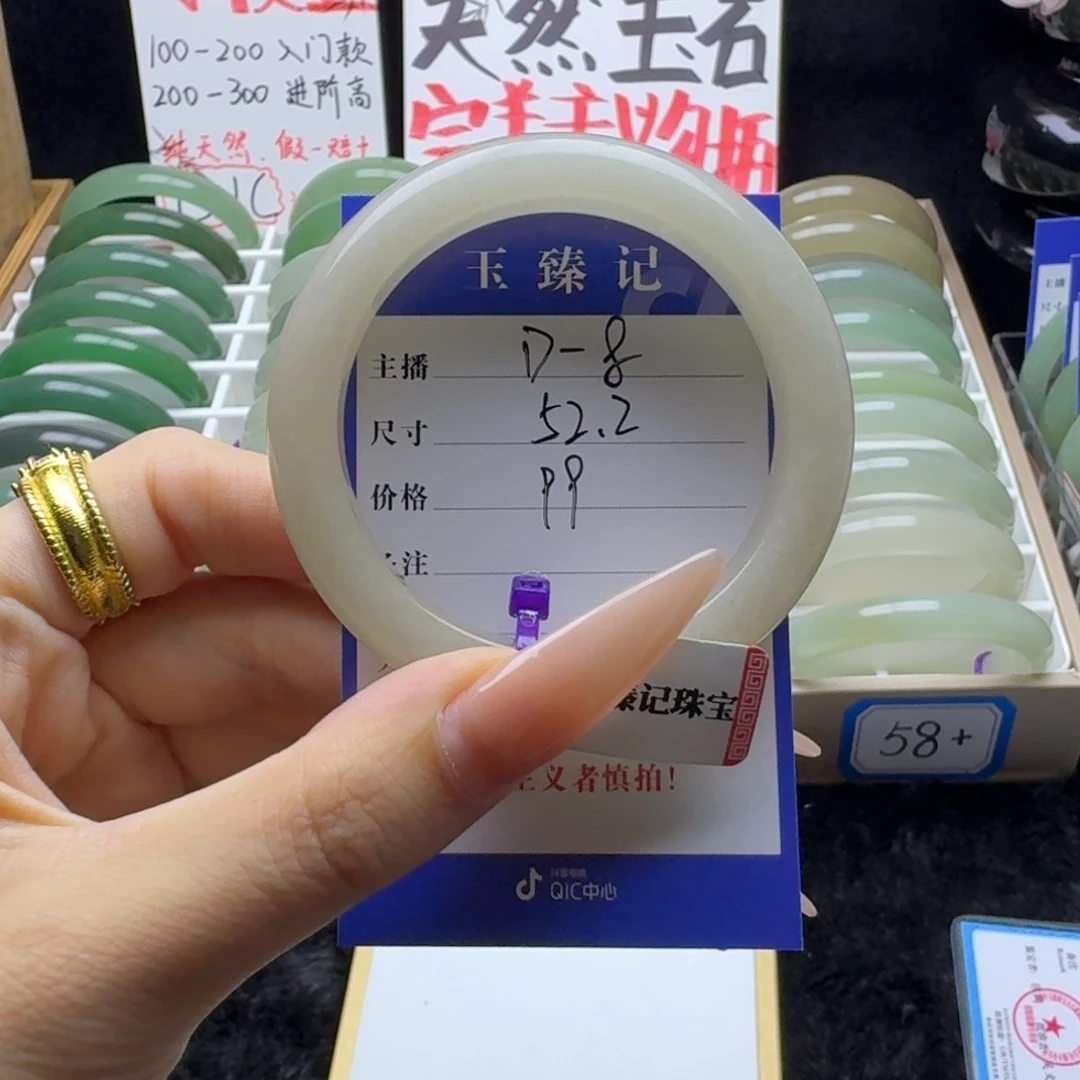 100-200 入门款
200-300 进阶高
纯天然.假一赔十
天然玉石
完美主义勿拍
玉臻记
主播 D-8
尺寸 52.2
价格 99
注
臻记珠宝
主义者慎拍!
抖音电商
QIC中心
58+
主播
尺寸